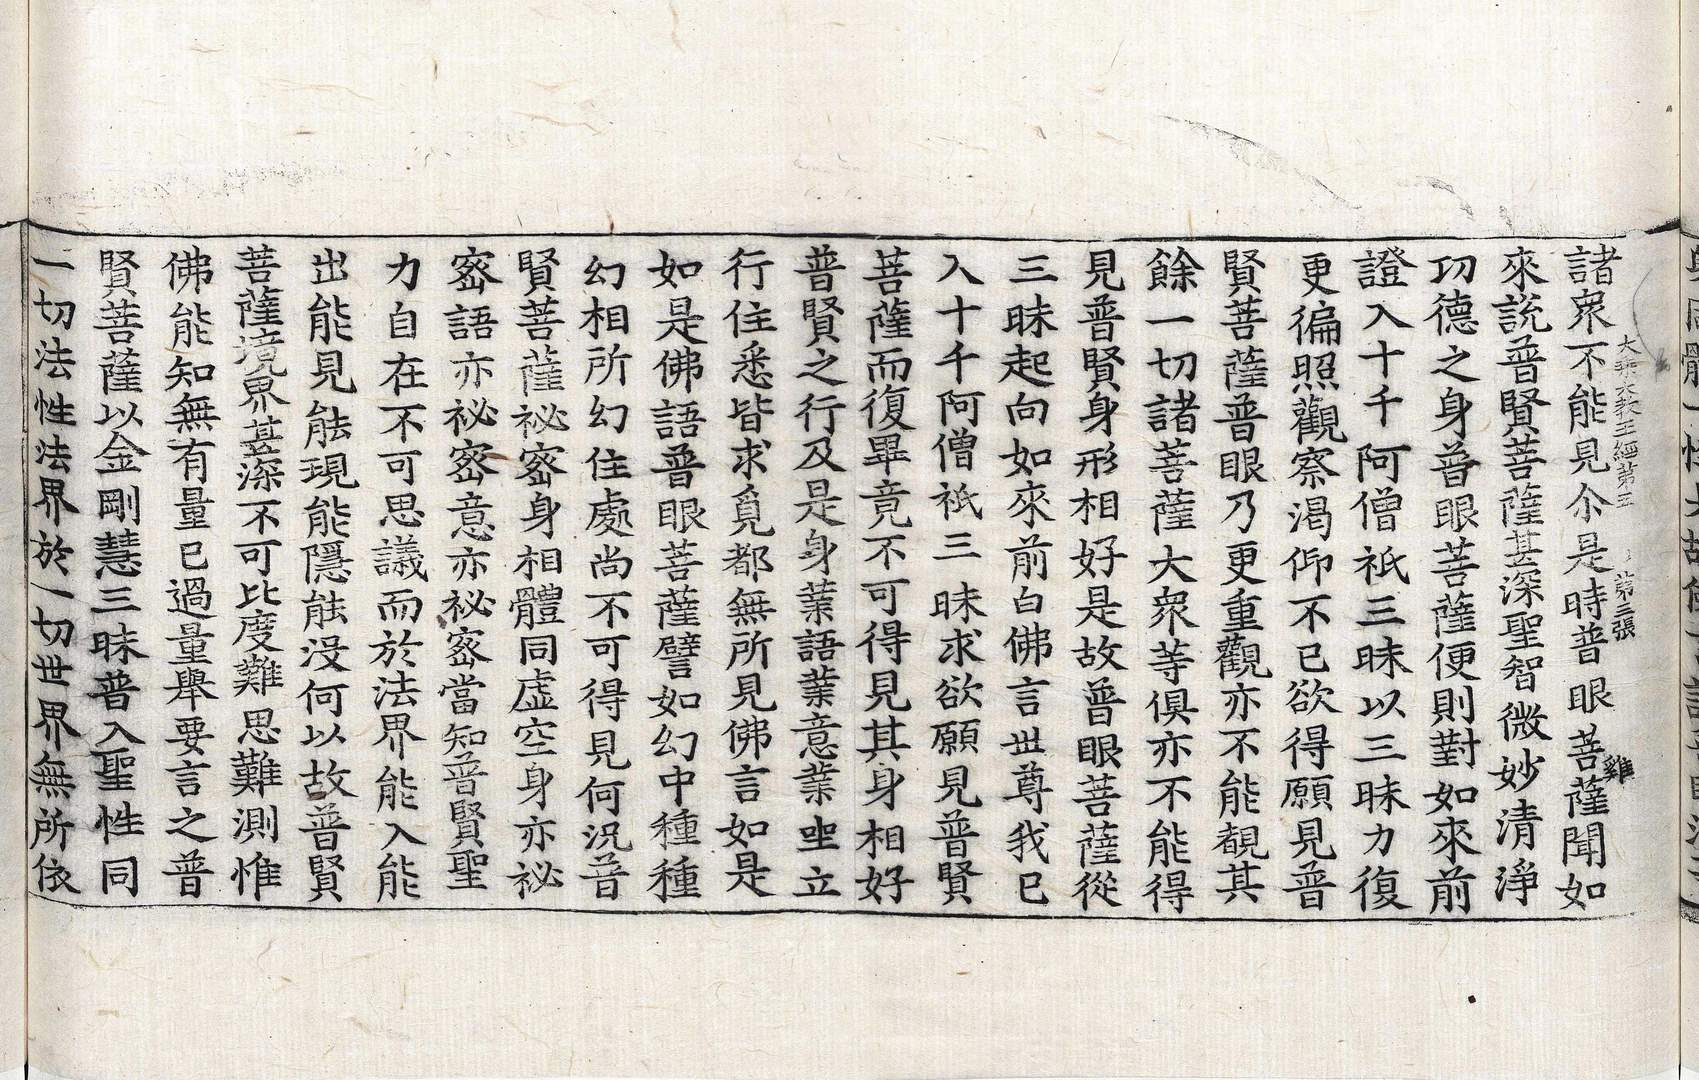 大乘大教王經第五 第三張 雞
諸衆不能見尒是時普眼菩薩聞如
來說普賢菩薩甚深聖智微妙清淨
功德之身普眼菩薩便則對如來前
證入十千阿僧祇三昧以三昧力復
更徧照觀察渴仰不已欲得願見普
賢菩薩普眼乃更重觀亦不能覩其
餘一切諸菩薩大衆等俱亦不能得
見普賢身形相好是故普眼菩薩從
三昧起向如來前白佛言世尊我已
入十千阿僧祇三昧求欲願見普賢
菩薩而復畢竟不可得見其身相好
普賢之行及是身業語業意業坐立
行住悉皆求覓都無所見佛言如是
如是佛語普眼菩薩譬如幻中種種
幻相所幻住處尚不可得見何況普
賢菩薩祕密身相體同虛空身亦祕
密語亦祕密意亦祕密當知普賢聖
力自在不可思議而於法界能入能
出能見能現能隱能沒何以故普賢
菩薩境界甚深不可比度難思難測惟
佛能知無有量已過量舉要言之普
賢菩薩以金剛慧三昧普入聖性同
一切法性法界於一切世界無所依